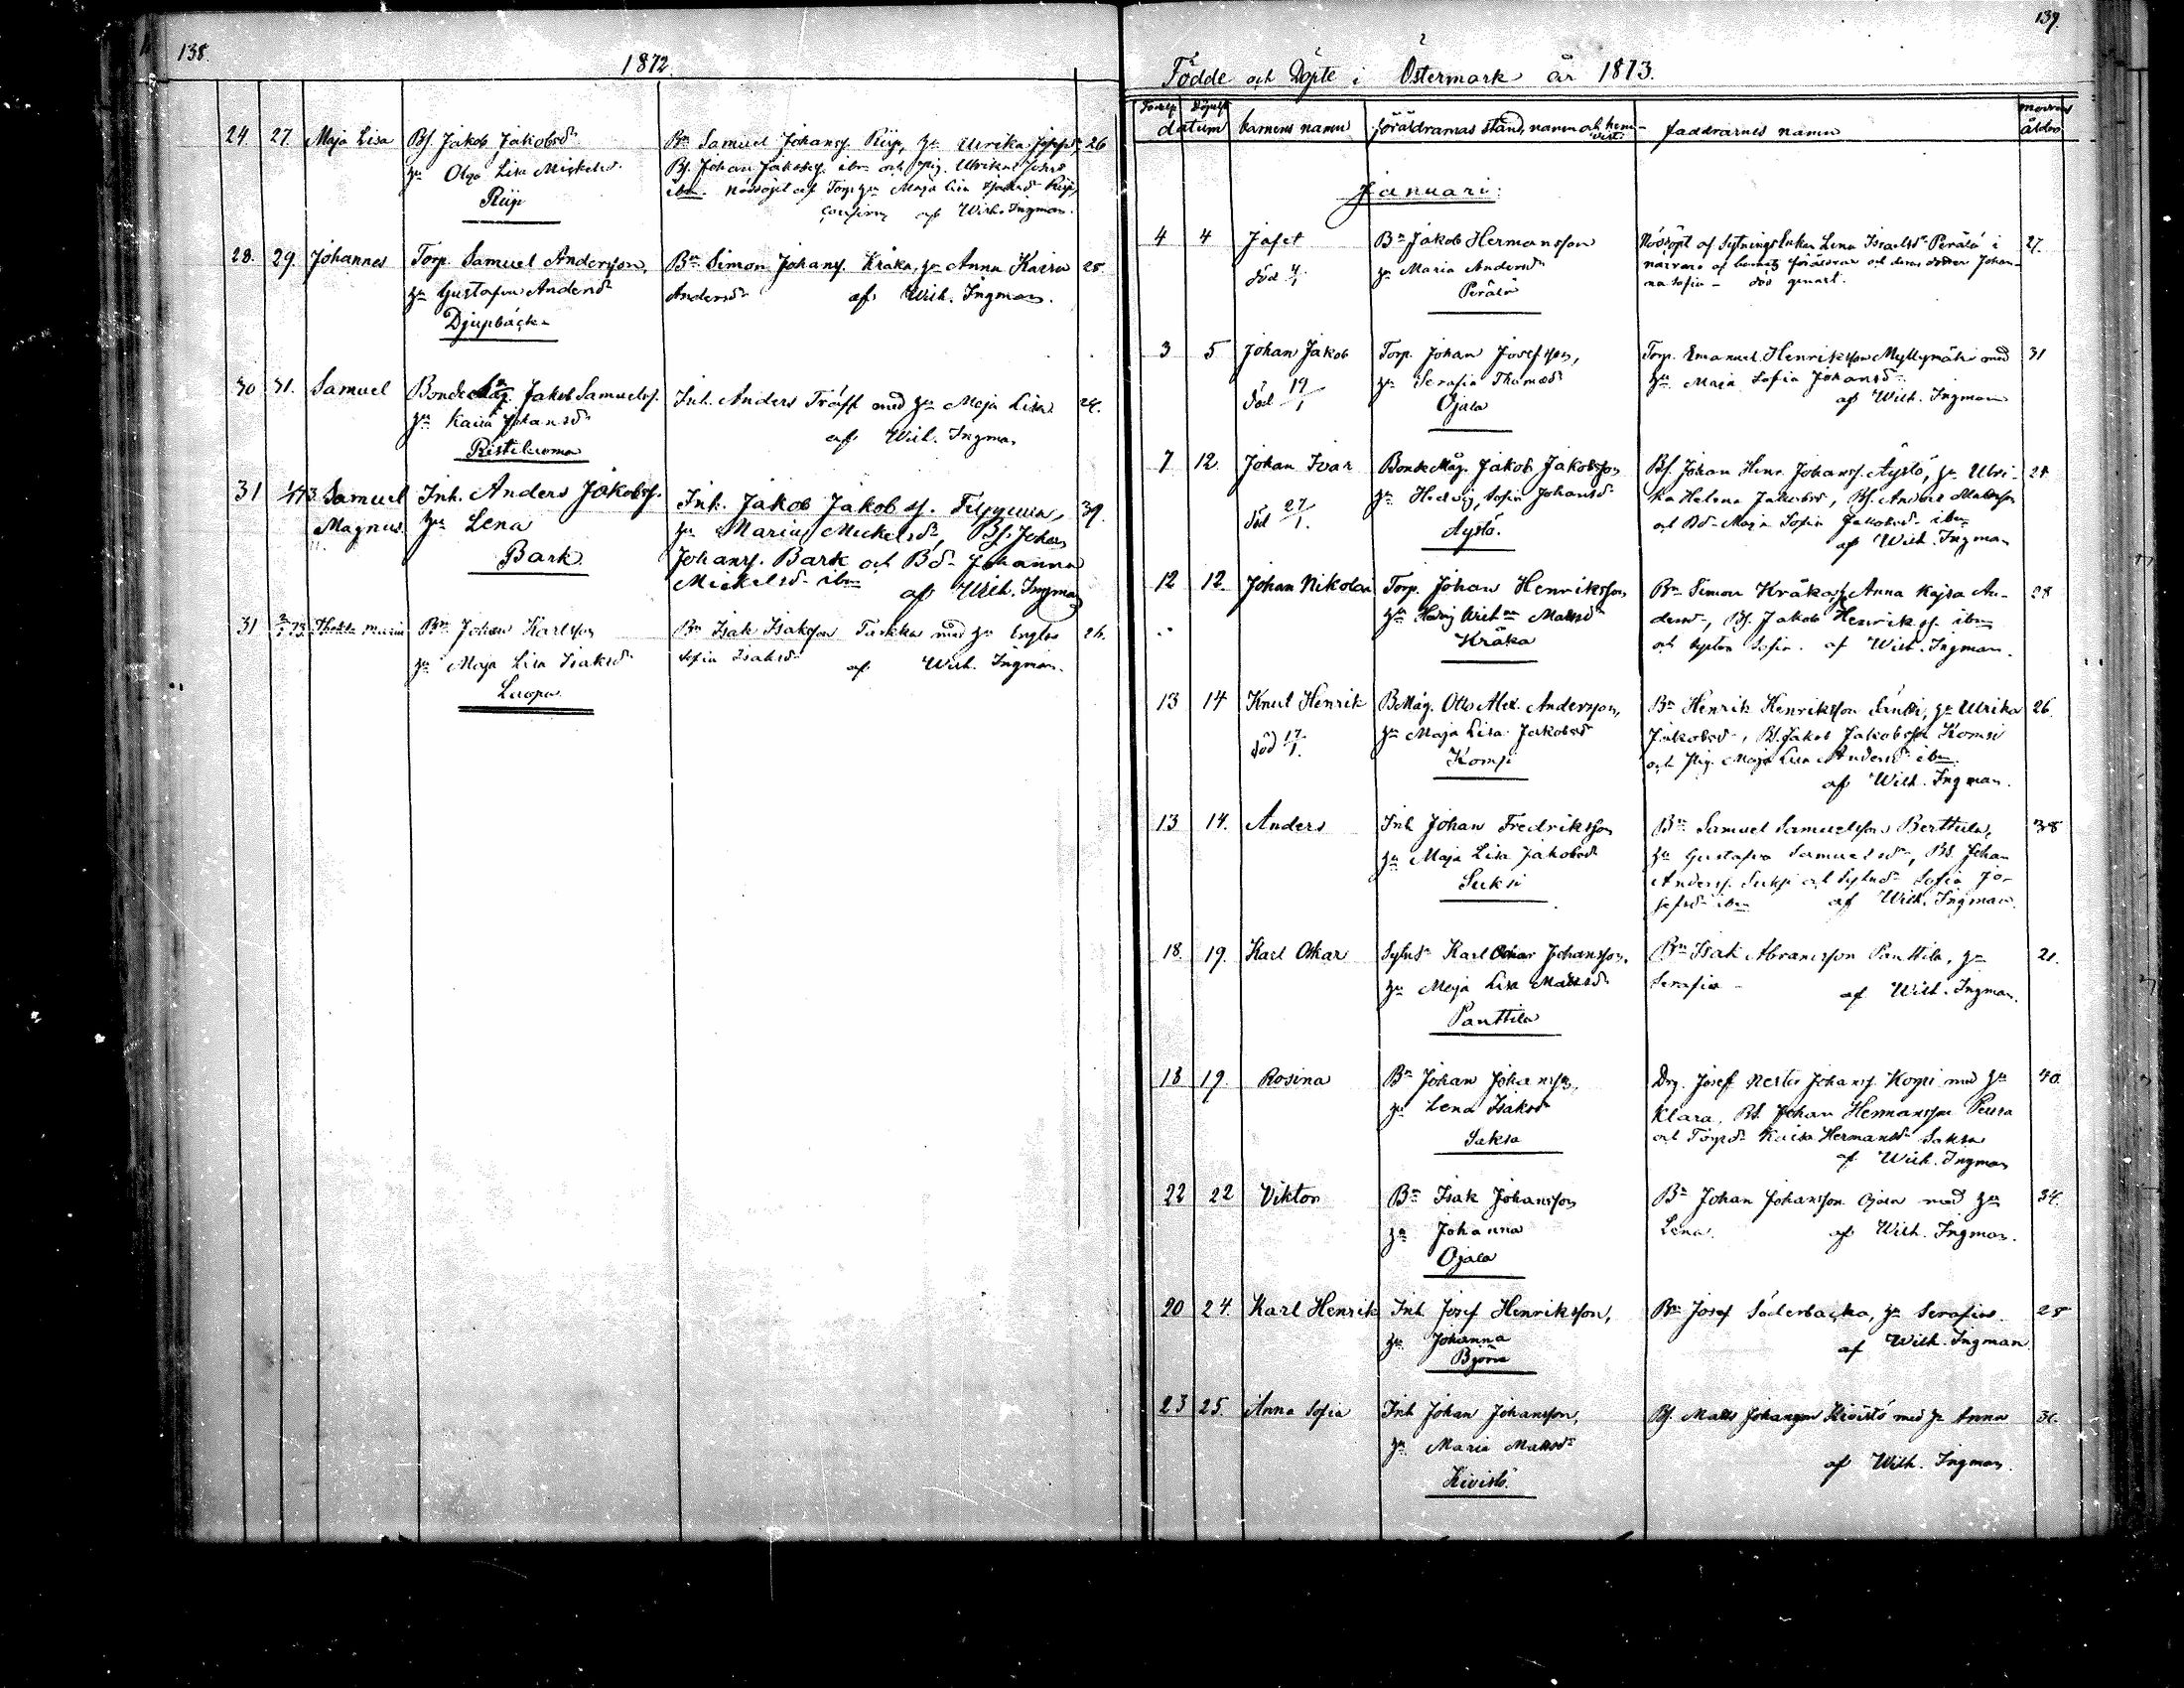 138.
1872.
24 27 Maja Lisa Bs. Jakob Jakobsd Bn Samuel Johanss. Riip, hu Ulrika 26
hu Olga Lisa Mickelsd. Bs. Johan Jakobss. ibm och pig. Ulrika
Riip ibm. nöddöpt af Torp. hu Maja Lisa Riip,
af Wilh. Ingman.
28. 29. Johannes Torp. Samuel Andersson, Bn Simon Johanss. Kråka, hu Anna Kaisa 25.
hu Gustafva Andersd Andersd af Wilh. Ingman.
Djupbäck
30 31. Samuel Bonde Jakob Samuelss. Inh. Anders Träff med hu Maja Lisa 24.
hu Kaisa Johansd af Wilh. Ingman
Ristiluoma
31 1/1 73 Samuel Inh. Anders Jakobss. Inh. Jakob Jakobss. 39.
Magnus. hu Lena hu Maria Mickelsd, Bs. Johan
Bark Johanss. Bark och Bd Johanna
Mickelsd ibm af Wilh. Ingman
31 73. Maria Bn Johan Karlsson Bn Isak Isaksson med hu 26.
hu Maja Lisa Isaksd Sofia Isaksd af Wilh. Ingman.
Luopa
139.
Födde och Döpte i Östermark år 1873.
datum barnens namn föräldrarnas stånd, namn och hemvist: faddrarnes namn modrens ålder
Januari:
4 4 Jafet Bn Jakob Hermansson Nöddöpt af Sytnings Enkan Lena Israelsd Perälä i 27.
död 4/1 hu Maria Andersd närvaro af barnets föräldrar och deras dotter Johan-
Perälä na Sofia - dog genast.
3 5 Johan Jakob Torp. Johan Josefsson, Torp. Emanuel Henriksson Myllymäki med 31
död 19/1 hu Serafia Thomasd hu Maja Sofia Johansd
Ojala af Wilh. Ingman
7 12. Johan Ivar Bonde Måg. Jakob Jakobsson Bs. Johan Henr. Johanss. Äystö, hu Ulri-
död 27/1. hu Hedvig Sofia Johansd ka Helena Jakobsd, Bs. Mattsson
Äystö. och Bd Maja Sofia Jakobsd ibm
af Wilh. Ingman
12 12. Johan Nikolai Torp. Johan Henriksson Bn Simon Kråka, Anna Kajsa An- 28
hu Hedvig Mattsd dersd, Bs. Jakob Henrikss. ibm
Kråka och Sofia. af Wilh. Ingman.
13 14 Knut Henrik B Måg. Otto Alex. Andersson, Bn Henrik Henriksson hu Ulrika 26.
död 17/1. hu Maja Lisa Jakobsd Jakobsd, Bs. Jakob Jakobsson Komsi
Komsi och Pig. Maja Lisa Andersd ibm.
af Wilh. Ingman.
13 14. Anders Inh Johan Fredriksson Bn Samuel Samuelsson Berttula, 38
hu Maja Lisa Jakobsd hu Gustafva Samuelsd, Bs. Johan
Suksi Anderss. Suksi och Sofia Jo-
sefsd ibm af Wilh. Ingman.
18. 19. Karl Oskar Karl Oskar Johansson, Bn Isak Abramsson Panttila, hu 21.
hu Maja Lisa Mattsd Serafia af Wilh. Ingman.
Panttila
18 19. Rosina Bn Johan Johansson, Drg. Josef Nestor Johanss. med hu 40.
hu Lena Isaksd Klara, Bs. Johan Hermansson Peura
Saksa och Torpd Kaisa Hermansd Saksa
af Wilh. Ingman
22 22 Viktor Bn Isak Johansson Bn Johan Johansson Ojala med hu 34.
hu Johanna Lena. af Wilh. Ingman.
Ojala
20 24. Karl Henrik Inh Josef Henriksson, Bn Josef Söderbacka, hu Serafia 28
hu Johanna af Wilh. Ingman
23 25. Anna Sofia Inh Johan Johansson, Bs. Matts Johansson Kivistö med hu Anna
hu Maria Mattsd af Wilh. Ingman.
Kivistö.